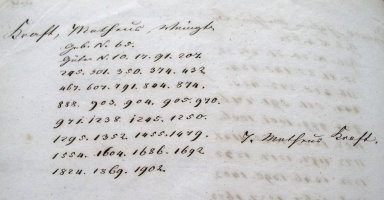 Kraft, Matheus,
Geb. N. 65.
Güter N. 10. 17. 91. 207.
295. 301. 350. 374. 432
467. 607. 791. 804. 874.
888. 903. 904. 905. 970.
971. 1238. 1245. 1250.
1295. 1352. 1455. 1479.
1554. 1604. 1686. 1692
1824. 1869. 1902.
T. Matheus Kraft.